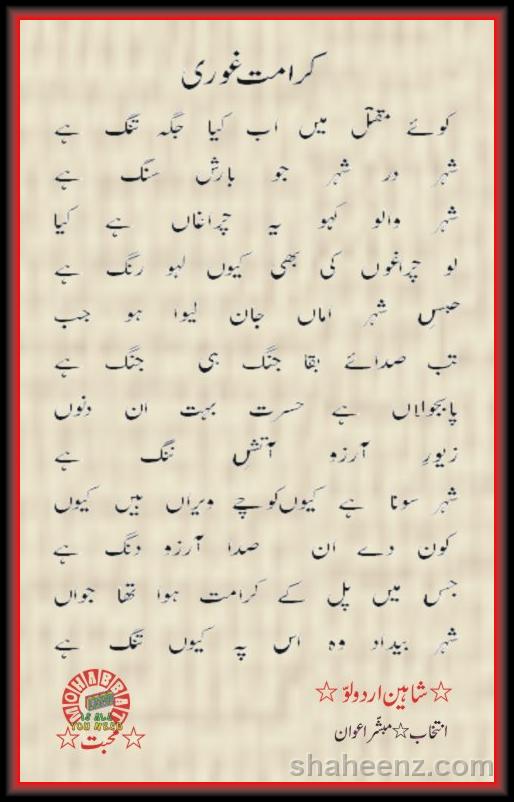 کرامت غوری
کوئے مقتل میں اب کیا جگہ تنگ ہے
شہر در شہر جو بارش سنگ ہے
شہر والو کہو یہ چراغاں ہے کیا
لو چراغوں کی بھی کیوں لہو رنگ ہے
حبسِ شہر اماں جان لیوا ہو جب
تب صدائے بقا جنگ ہی جنگ ہے
پابجولاں ہے حسرت بہت ان دنوں
زیورِ آرزو آتشِ ننگ ہے
شہر سونا ہے کیوں کوچے ویراں ہیں کیوں
کون دے ان صدا آرزو دنگ ہے
جس میں پل کے کرامت ہوا تھا جواں
شہر بیداد وہ اس پہ کیوں تنگ ہے
☆شاہین اردو لوّ☆
انتخاب☆مبشّر اعوان
MOHABBAT
IS ALL
YOU NEED
☆محبت☆
shaheenz.com